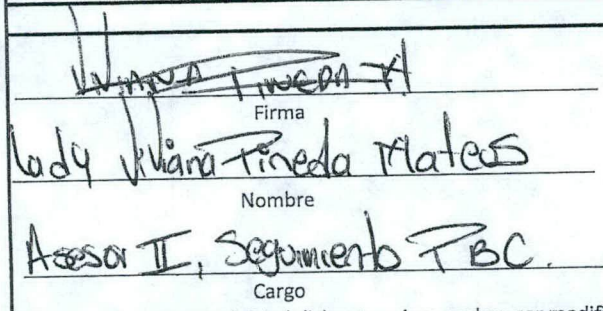 VIVIANA PINEDA M
Firma
Lady Viviana Pineda Mateos
Nombre
Asesor II, Seguimiento PBC.
Cargo